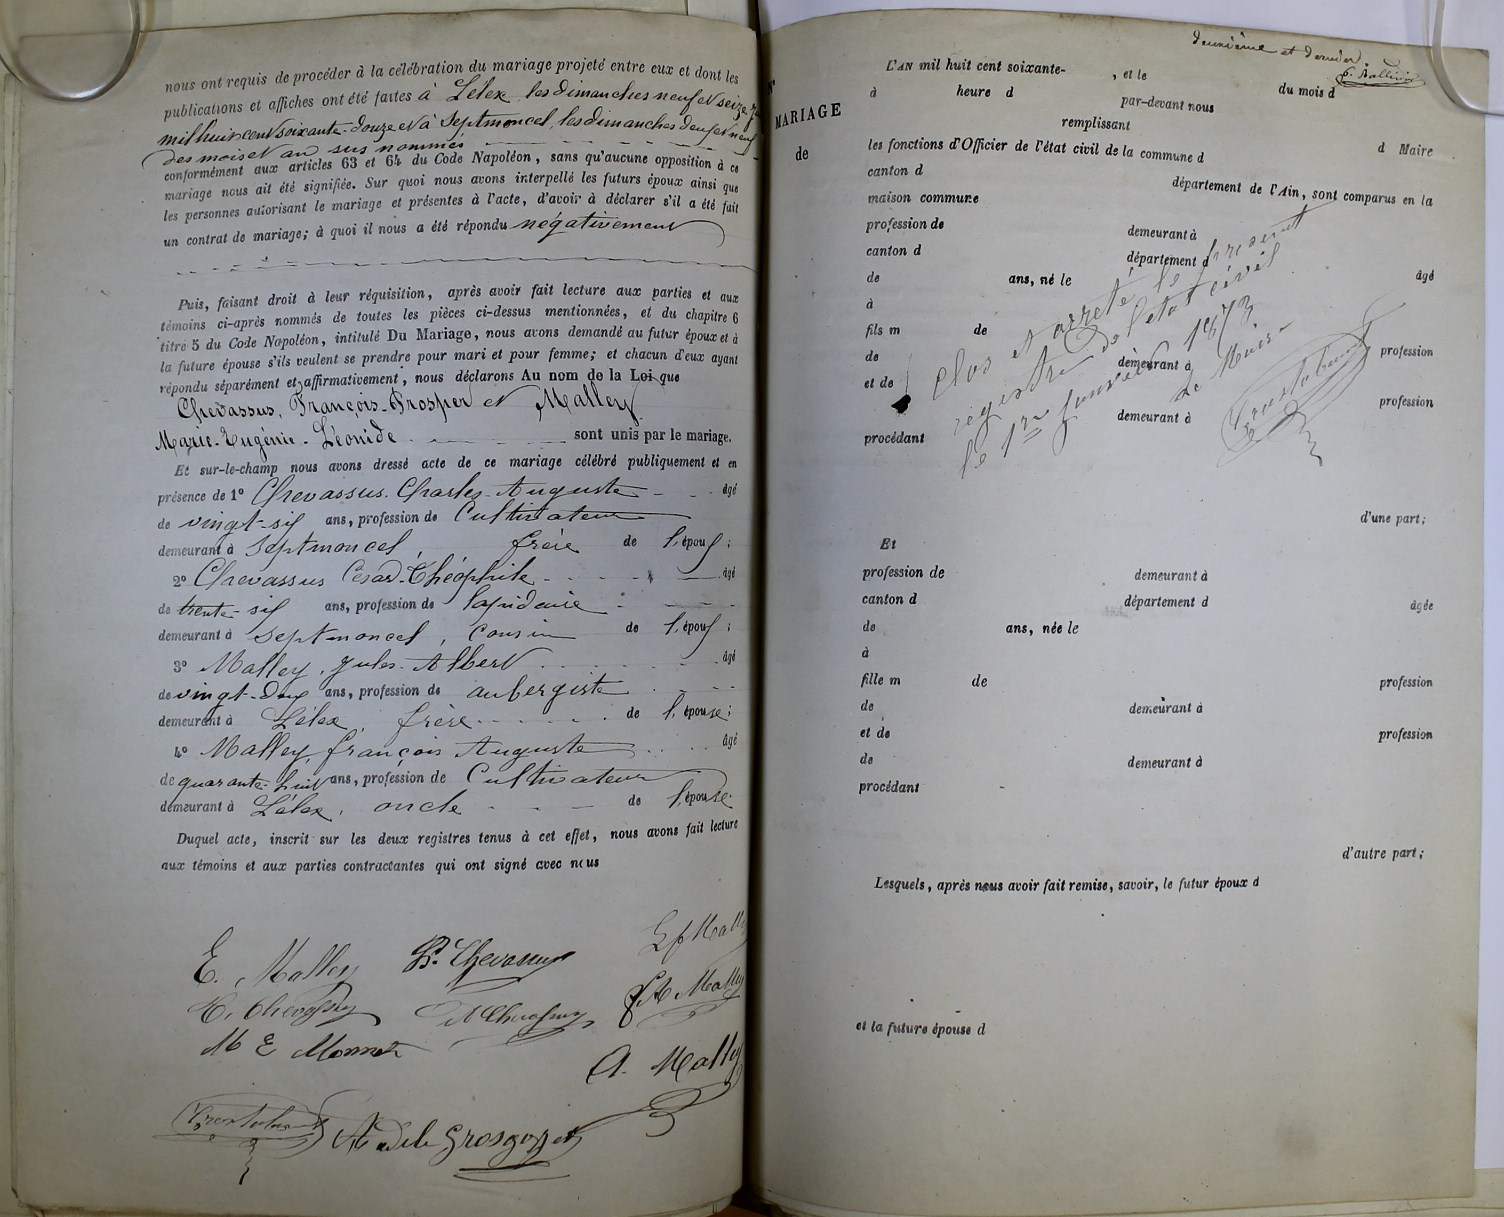 nous ont requis de procéder à la célébration du mariage projeté entre eux et dont les
publications et affiches ont été faites à Lélex les dimanches neuf et seize
mil huit cent soixante-douze et à Septmoncel, les dimanches deux et neuf
des mois et an sus nommés
conformément aux articles 63 et 64 du Code Napoléon, sans qu'aucune opposition à ce
mariage nous ait été signifiée. Sur quoi nous avons interpellé les futurs époux ainsi que
les personnes autorisant le mariage et présentes à l'acte, d'avoir à déclarer s'il a été fait
un contrat de mariage; à quoi il nous a été répondu négativement
Puis, faisant droit à leur réquisition, après avoir fait lecture aux parties et aux
témoins ci-après nommés de toutes les pièces ci-dessus mentionnées, et du chapitre 6
titre 5 du Code Napoléon, intitulé Du Mariage, nous avons demandé au futur époux et à
la future épouse s'ils veulent se prendre pour mari et pour femme; et chacun d'eux ayant
répondu séparément et affirmativement, nous déclarons Au nom de la Loi que
Chevassus, François-Prosper et Malley
Marie-Eugénie-Léonide sont unis par le mariage.
Et sur-le-champ nous avons dressé acte de ce mariage célébré publiquement et en
présence de 1° Chevassus. Charles-Auguste âgé
de vingt-six ans, profession de Cultivateur
demeurant à Septmoncel, frère de l'époux;
2° Chevassus César-Théophile âgé
de trente-six ans, profession de lapidaire
demeurant à Septmoncel, cousin de l'époux;
3° Malley, Jules-Albert âgé
de vingt-deux ans, profession de aubergiste
demeurant à Lélex, frère de l'épouse;
4° Malley, François Auguste âgé
de quarante-huit ans, profession de Cultivateur
demeurant à Lélex, oncle de l'épouse
Duquel acte, inscrit sur les deux registres tenus à cet effet, nous avons fait lecture
aux témoins et aux parties contractantes qui ont signé avec nous
E. Malley P. Chevassus
C. Chevassus F A Malley
M E Monnet A. Malley
Adele Grosgozat
deuxième et dernier
N°
MARIAGE
de
L'AN mil huit cent soixante- , et le du mois d
à heure d par-devant nous
remplissant
les fonctions d'Officier de l'état civil de la commune d d Maire
canton d département de l'Ain, sont comparus en la
maison commune
profession de demeurant à
canton d département d âgé
de ans, né le
à
fils m de
de demeurant à profession
et de
demeurant à profession
procédant
Clos et arrêté le présent
registre de l'état civil
le 1er janvier 1873
Le Maire
d'une part;
Et
profession de demeurant à
canton d département d âgée
de ans, née le
à
fille m de profession
de demeurant à
et de profession
de demeurant à
procédant
d'autre part;
Lesquels, après nous avoir fait remise, savoir, le futur époux d
et la future épouse d